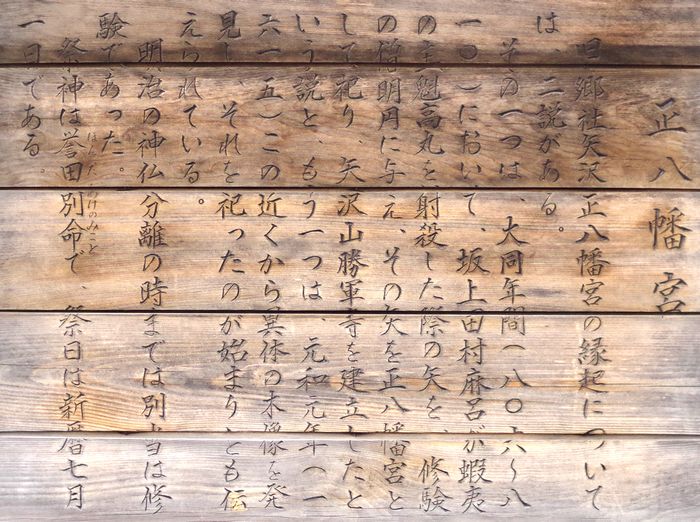 正八幡宮
旧郷社矢沢正八幡宮の縁起について
は、二説がある。
その一つは、大同年間(八〇六〜八
一〇)において、坂上田村麻呂が蝦夷
の主魁高丸を射殺した際の矢を、修験
の僧明円に与え、その矢を正八幡宮と
して祀り、矢沢山勝軍寺を建立したと
いう説と、もう一つは、元和元年(一
六一五)この近くから異体の木像を発
見し、それを祀ったのが始まりとも伝
えられている。
明治の神仏分離の時までは別当は修
験であった。
祭神は誉田別命で、祭日は新暦七月
一日である。